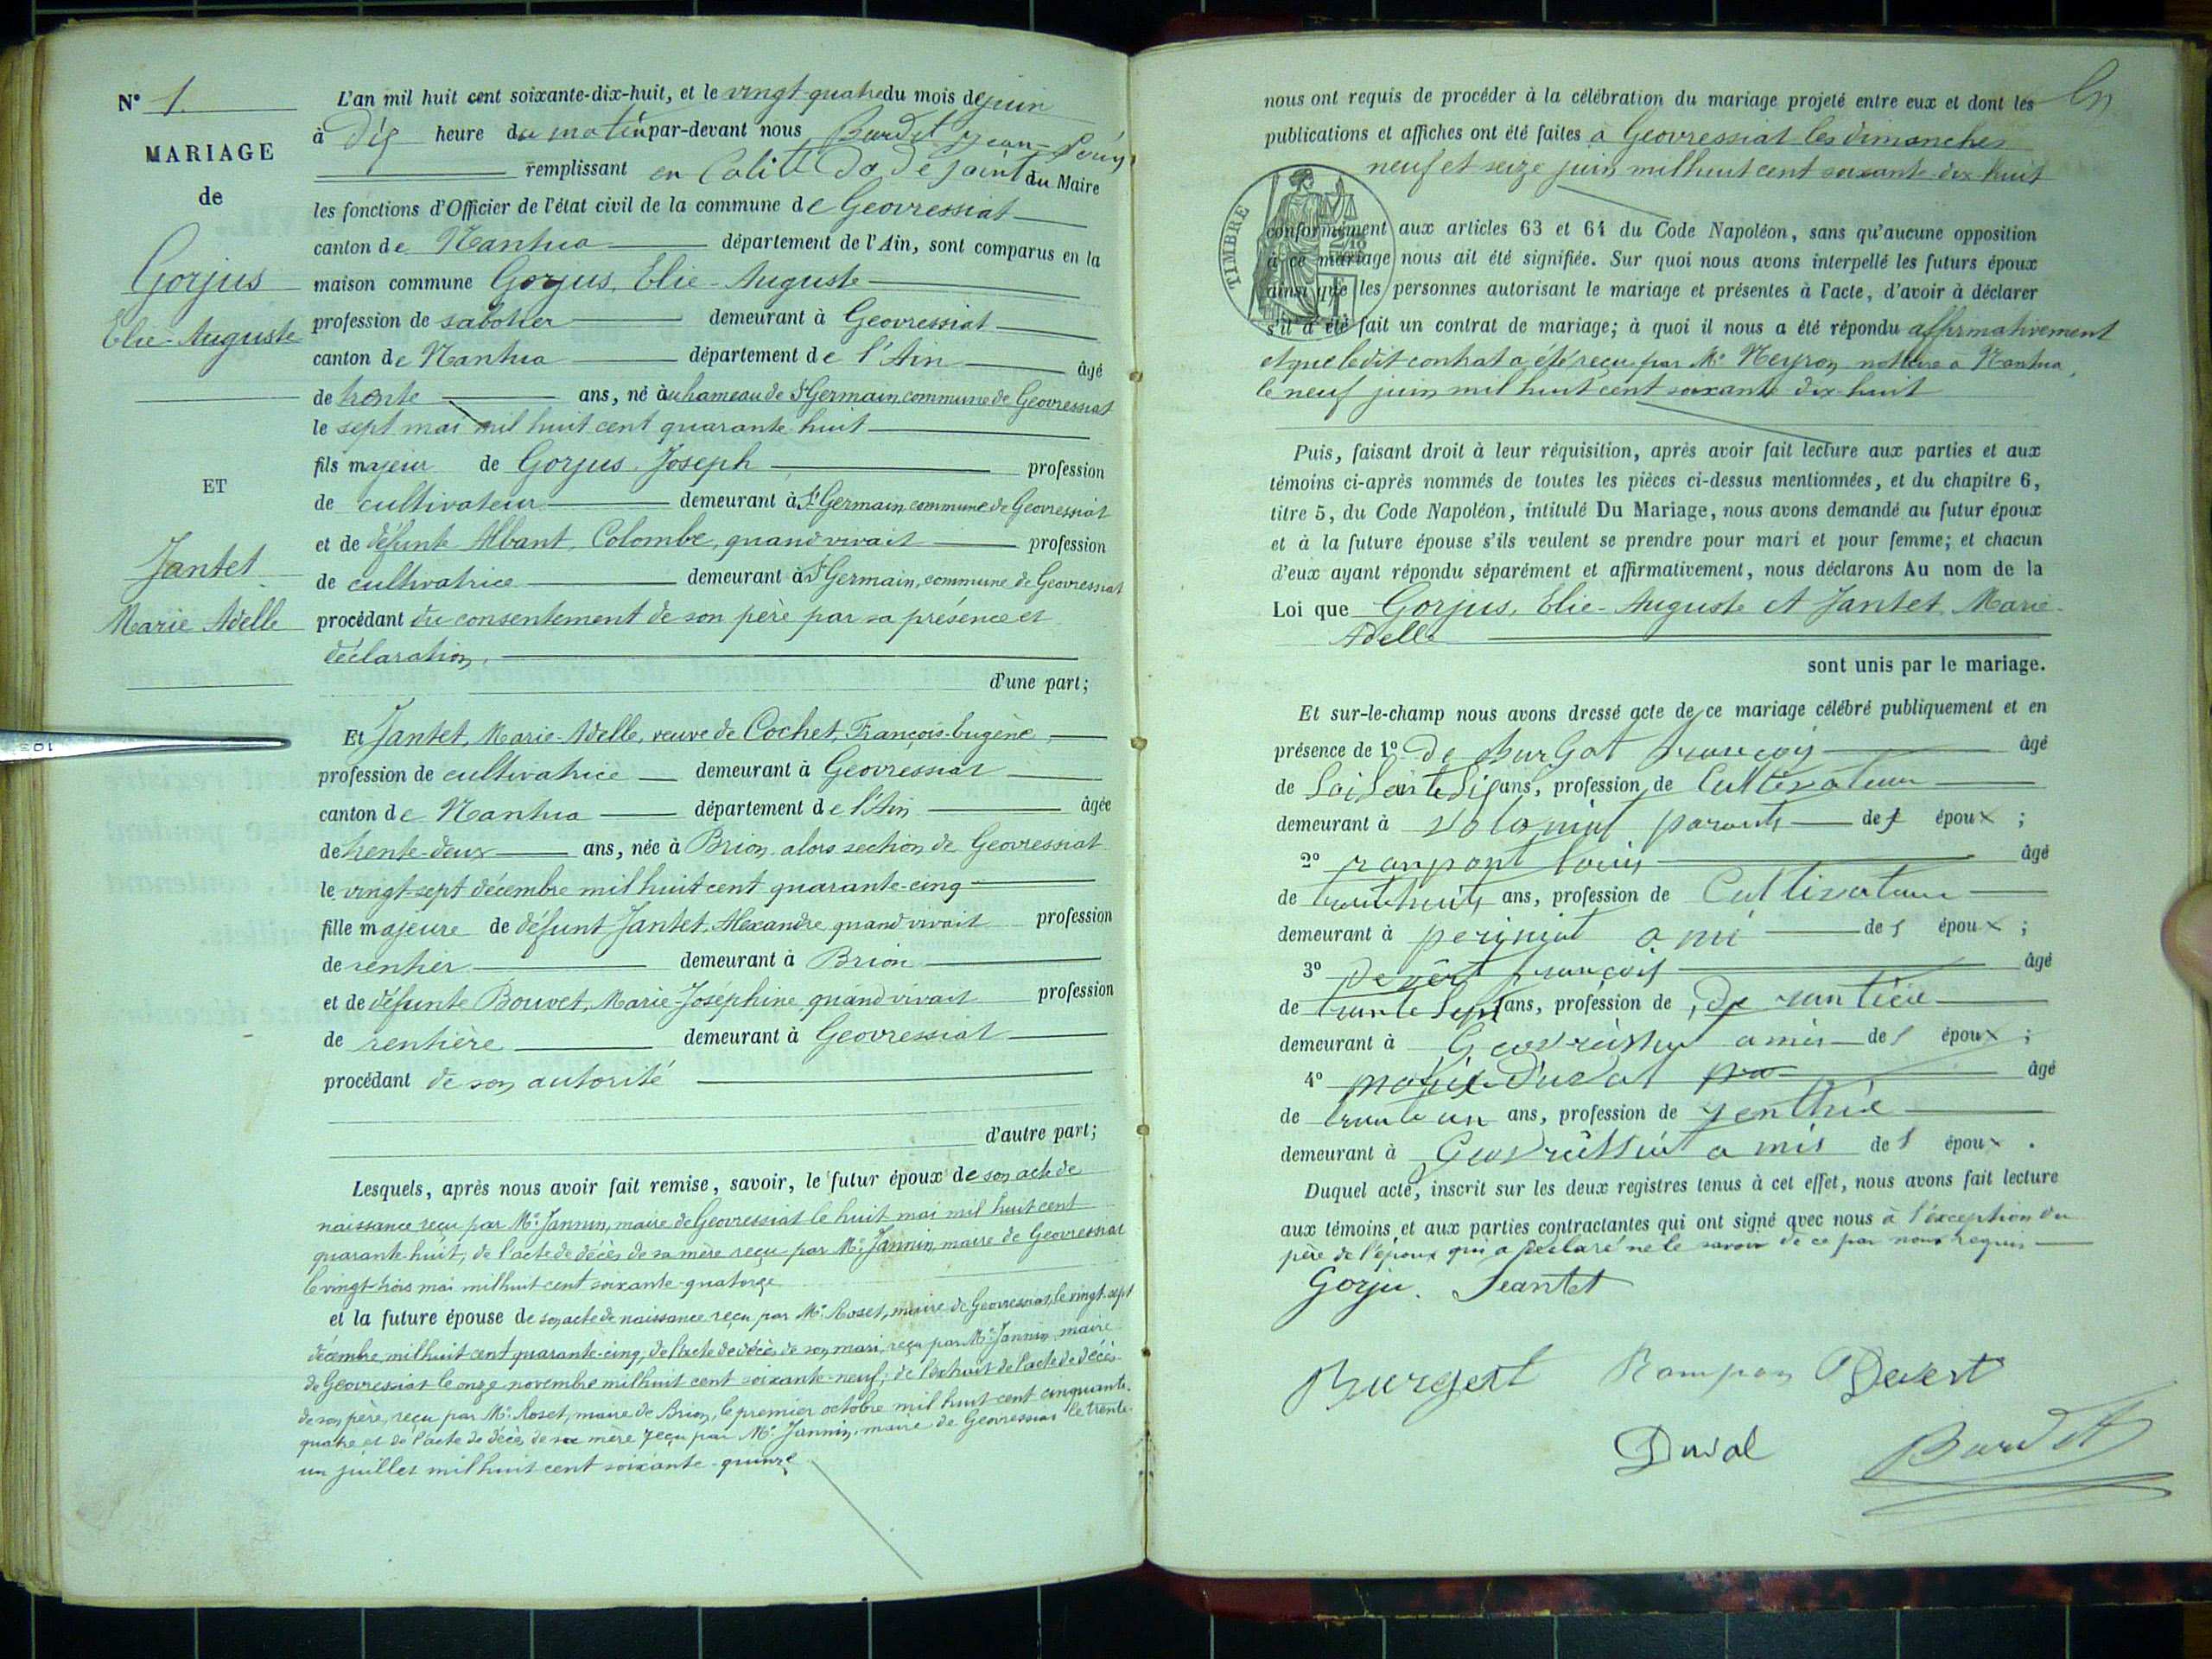 N° 1.
MARIAGE
de
Gorjus
Elie-Auguste
ET
Jantet
Marie Adelle
L'an mil huit cent soixante-dix-huit, et le vingt-quatre du mois de juin
à Dis heure du matin par-devant nous Burdet Jean-Louis
remplissant en Calité da dejoint du Maire
les fonctions d'Officier de l'état civil de la commune de Geovressiat
canton de Nantua département de l'Ain, sont comparus en la
maison commune Gorjus, Elie-Auguste
profession de sabotier demeurant à Geovressiat
canton de Nantua département de l'Ain âgé
de trente ans, né au hameau de St Germain, commune de Geovressiat
le sept mai mil huit cent quarante huit
fils majeur de Gorjus, Joseph profession
de cultivateur demeurant à St Germain commune de Geovressiat
et de défunte Albant, Colombe, quand vivait profession
de cultivatrice demeurant à St Germain, commune de Geovressiat
procédant du consentement de son père par sa présence et
déclaration,
d'une part;
Et Jantet, Marie-Adelle, veuve de Cochet, François-Eugène,
profession de cultivatrice demeurant à Geovressiat
canton de Nantua département de l'Ain âgée
de trente-deux ans, née à Brion alors section de Geovressiat
le vingt-sept décembre mil huit cent quarante-cinq
fille majeure de défunt Jantet, Alexandre quand vivait profession
de rentier demeurant à Brion
et de défunte Bouvet, Marie-Joséphine quand vivait profession
de rentière demeurant à Geovressiat
procédant de son autorité
d'autre part;
Lesquels, après nous avoir fait remise, savoir, le futur époux de son acte de
naissance reçu par Mr Jannin, maire de Geovressiat le huit mai mil huit cent
quarante-huit, de l'acte de décès de sa mère reçu par Mr Jannin, maire de Geovressiat
le vingt-trois mai mil huit cent soixante-quatorze
et la future épouse de son acte de naissance reçu par Mr Roset, maire de Geovressiat, le vingt-sept
décembre mil huit cent quarante-cinq, de l'acte de décès de son mari, reçu par Mr Jannin maire
de Geovressiat le onze novembre mil huit cent soixante-neuf, de l'extrait de l'acte de décès
de son père, reçu par Mr Roset, maire de Brion, le premier octobre mil huit cent cinquante-
quatre et de l'acte de décès de sa mère reçu par Mr Jannin, maire de Geovressiat le trente-
un juillet mil huit cent soixante-quinze
nous ont requis de procéder à la célébration du mariage projeté entre eux et dont les
publications et affiches ont été faites à Geovressiat les dimanches
neuf et seize juin mil huit cent soixante-dix-huit
TIMBRE
conformément aux articles 63 et 64 du Code Napoléon, sans qu'aucune opposition
à ce mariage nous ait été signifiée. Sur quoi nous avons interpellé les futurs époux
ainsi que les personnes autorisant le mariage et présentes à l'acte, d'avoir à déclarer
s'il a été fait un contrat de mariage; à quoi il nous a été répondu affirmativement
et que ledit contrat a été reçu par Me Neyron notaire à Nantua,
le neuf juin mil huit cent soixante dix-huit
Puis, faisant droit à leur réquisition, après avoir fait lecture aux parties et aux
témoins ci-après nommés de toutes les pièces ci-dessus mentionnées, et du chapitre 6,
titre 5, du Code Napoléon, intitulé Du Mariage, nous avons demandé au futur époux
et à la future épouse s'ils veulent se prendre pour mari et pour femme; et chacun
d'eux ayant répondu séparément et affirmativement, nous déclarons Au nom de la
Loi que Gorjus, Elie-Auguste et Jantet, Marie-
Adelle
sont unis par le mariage.
Et sur-le-champ nous avons dressé acte de ce mariage célébré publiquement et en
présence de 1° De Burgat françois âgé
de Soisante Sis ans, profession de Cultivateur
demeurant à parants de l époux ;
2° ranpont louis âgé
de trante huit ans, profession de Cultivateur
demeurant à perignat ami de l époux ;
3° De vert françois âgé
de trante Sept ans, profession de De rantiée
demeurant à amis de l époux ;
4° Duval âgé
de trante un ans, profession de renthié
demeurant à amis de l époux .
Duquel acte, inscrit sur les deux registres tenus à cet effet, nous avons fait lecture
aux témoins et aux parties contractantes qui ont signé avec nous à l'exception du
père de l'époux qui a déclaré ne le savoir de ce par nous requis
Gorju. Jeantet
Burgert Rampon Devert
Duval Burdet